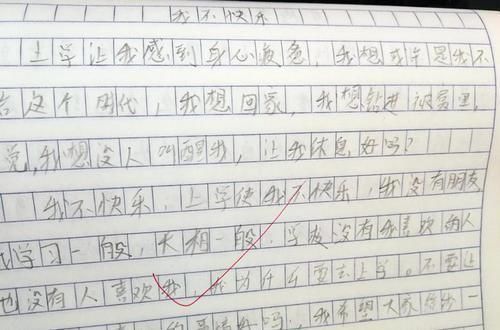 我不快乐
上学让我感到身心疲惫，我想或许是我不
合这个时代，我想回家，我想钻进被窝里，
觉，我想没人叫醒我，让我休息好吗？
我不快乐，上学使我不快乐，我没有朋友
学习一般，大相一般，学校没有我喜欢的人
也没有人喜欢我，我为什么要去上学。不要让
好吗，我希望大家